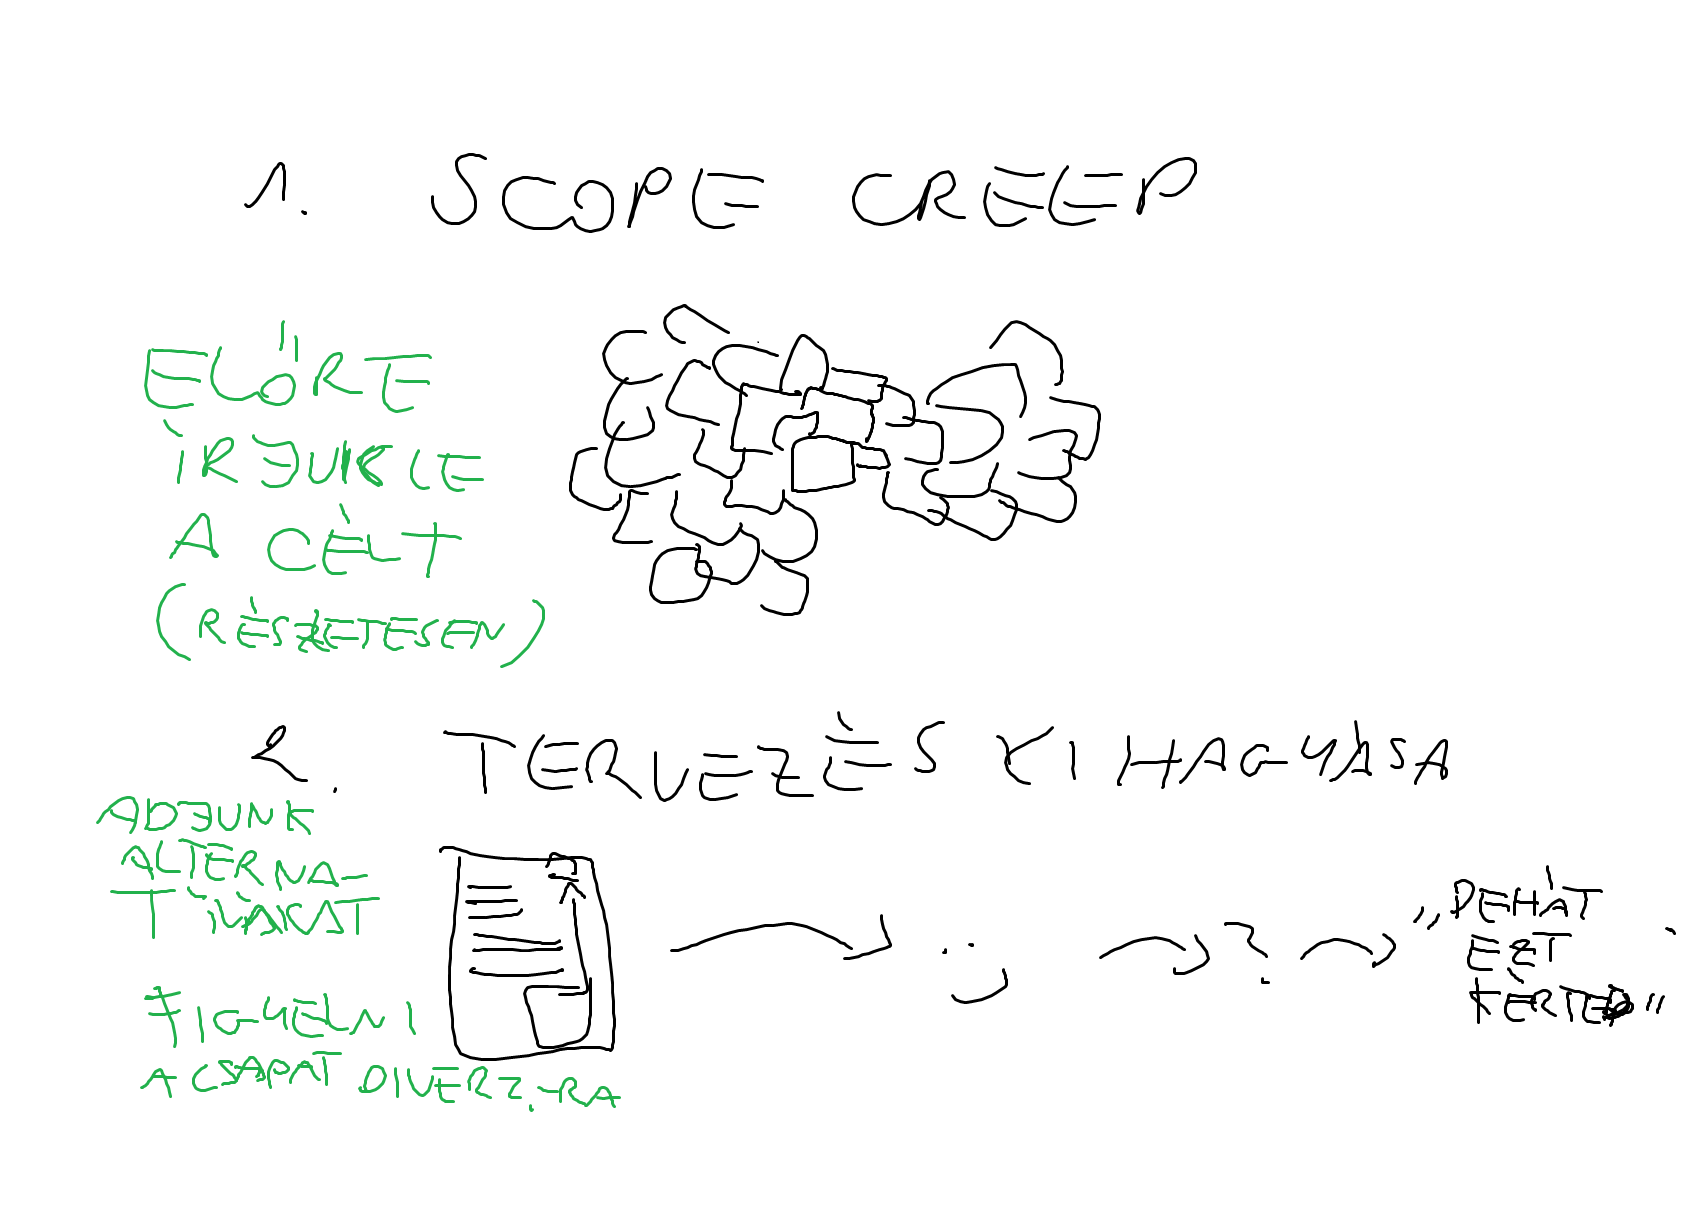 1. SCOPE CREEP
ELŐRE
ÍRJUK LE
A CÉLT
(RÉSZLETESEN)
2. TERVEZÉS KIHAGYÁSA
ADJUNK
ALTERNA-
TÍVÁKAT
FIGYELNI
A CSAPAT DIVERZ.-RA
:)
?
„DEHÁT
EZT
KÉRTED"